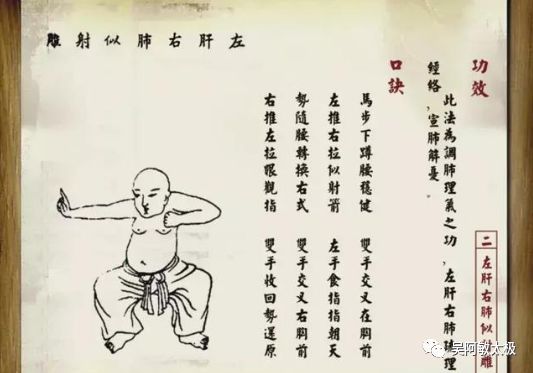 左肝右肺似射雕
二 左肝右肺似射雕
功效
此法為調肺理氣之功,左肝右肺疎理
經絡,宣肺解憂。
口訣
馬步下蹲腰穩健 雙手交叉在胸前
左推右拉似射箭 左手食指指朝天
勢隨腰轉換右式 雙手交叉右胸前
右推左拉眼觀指 雙手收回勢還原
吴阿敏太极